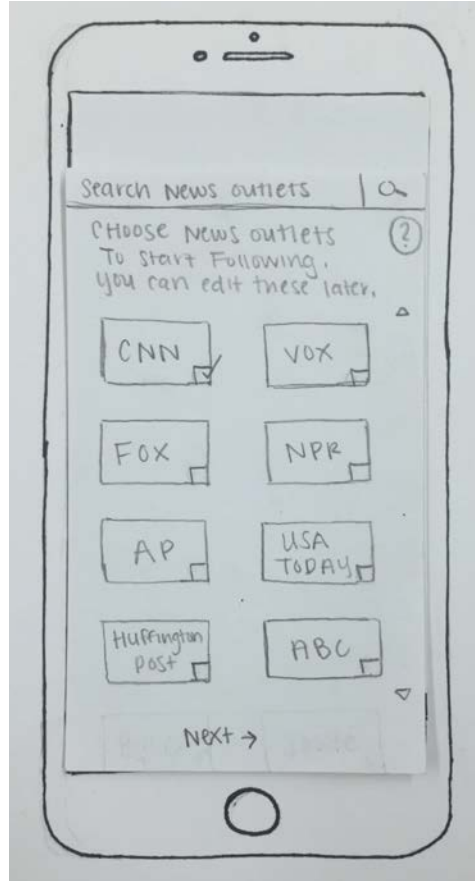 Search News outlets
?
CHOOSE News outlets
To Start Following.
you can edit these later.
CNN
VOX
FOX
NPR
AP
USA
TODAY
Huffington
Post
ABC
Next →